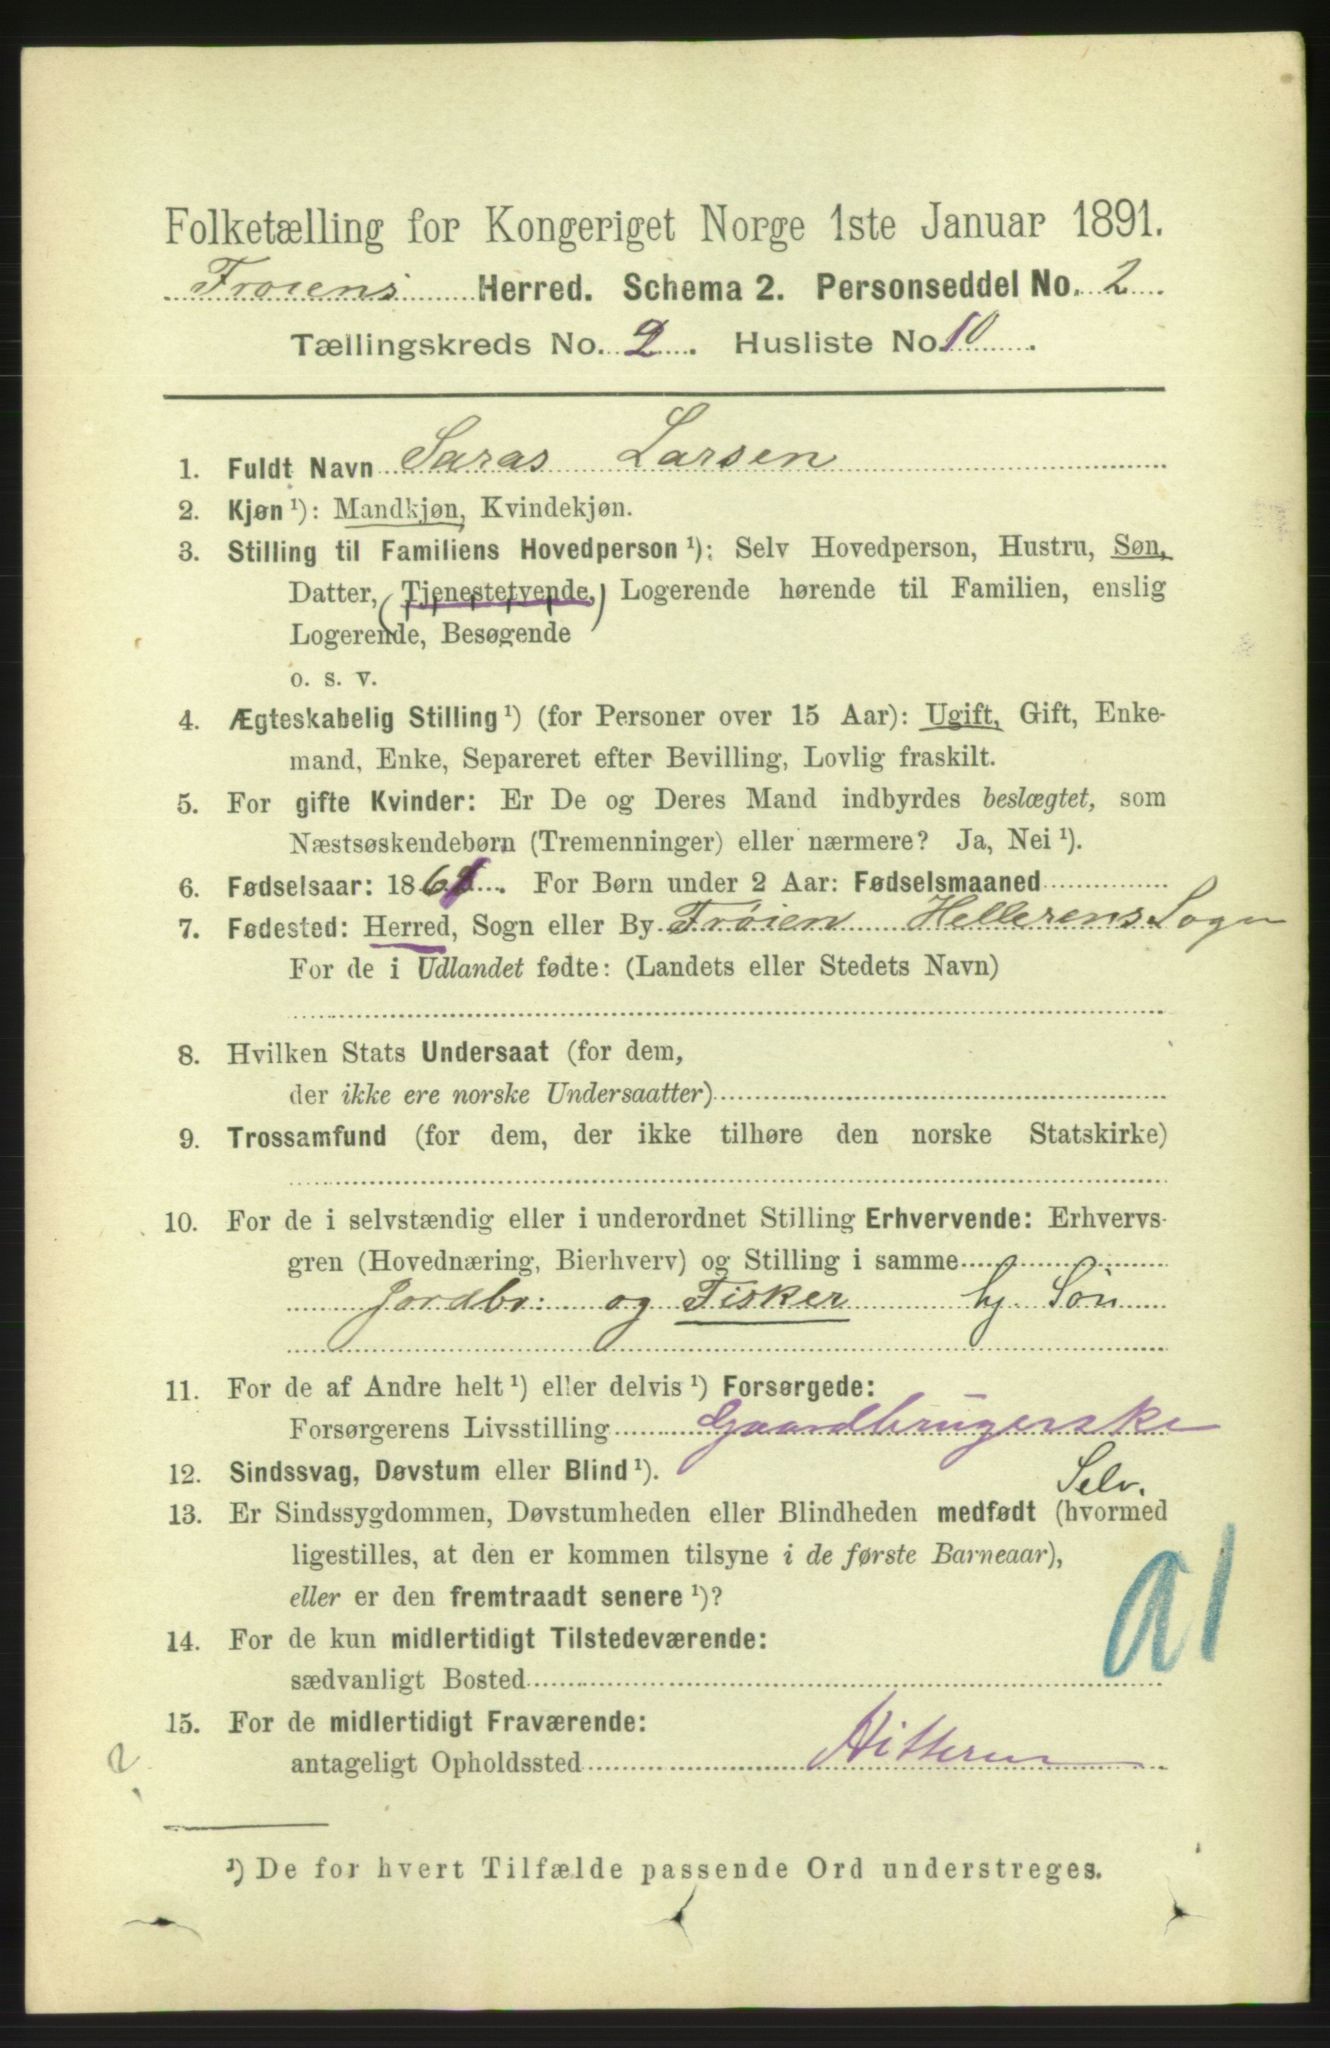 Folketælling for Kongeriget Norge 1ste Januar 1891.
Frøiens Herred. Schema 2. Personseddel No. 2
Tællingskreds No. 2. Husliste No 10.
1. Fuldt Navn Saras Larsen
2. Kjøn ¹): Mandkjøn, Kvindekjøn.
3. Stilling til Familiens Hovedperson ¹): Selv Hovedperson, Hustru, Søn,
Datter, (Tjenestetyende,) Logerende hørende til Familien, enslig
Logerende, Besøgende
o. s. v.
4. Ægteskabelig Stilling ¹) (for Personer over 15 Aar): Ugift, Gift, Enke-
mand, Enke, Separeret efter Bevilling, Lovlig fraskilt.
5. For gifte Kvinder: Er De og Deres Mand indbyrdes beslægtet, som
Næstsøskendebørn (Tremenninger) eller nærmere? Ja, Nei ¹).
6. Fødselsaar: 186 . For Børn under 2 Aar: Fødselsmaaned
7. Fødested: Herred, Sogn eller By Frøien Hellerens Sogn
For de i Udlandet fødte: (Landets eller Stedets Navn)
8. Hvilken Stats Undersaat (for dem,
der ikke ere norske Undersaatter)
9. Trossamfund (for dem, der ikke tilhøre den norske Statskirke)
10. For de i selvstændig eller i underordnet Stilling Erhvervende: Erhvervs-
gren (Hovednæring, Bierhverv) og Stilling i samme
Jordbr: og Fisker hj. Søn
11. For de af Andre helt ¹) eller delvis ¹) Forsørgede:
Forsørgerens Livsstilling Gaardbrugerske
12. Sindssvag, Døvstum eller Blind ¹). Selv.
13. Er Sindssygdommen, Døvstumheden eller Blindheden medfødt (hvormed
ligestilles, at den er kommen tilsyne i de første Barneaar),
eller er den fremtraadt senere ¹)?
a1
14. For de kun midlertidigt Tilstedeværende:
sædvanligt Bosted
15. For de midlertidigt Fraværende:
antageligt Opholdssted Hitteren
¹) De for hvert Tilfælde passende Ord understreges.